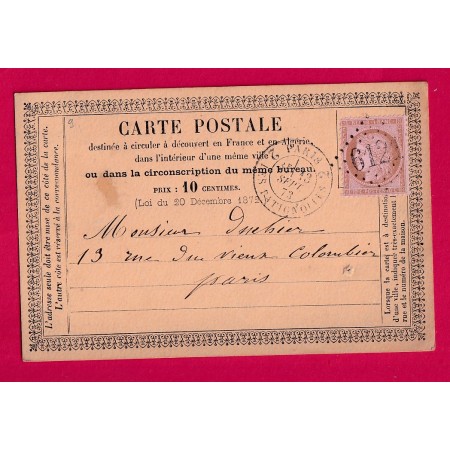 CARTE POSTALE
destinée à circuler à découvert en France et en Algérie
dans l'intérieur d'une même ville
ou dans la circonscription du même bureau.
PRIX : 10 CENTIMES.
(Loi du 20 Décembre 1872)
Monsieur Duchier
13 rue du vieux Colombier
paris
L'adresse seule doit être mise de ce côté de la carte.
L'autre côté est réservé à la correspondance.
Lorsque la carte est à destination
d'une ville, indiquer très-exactement la
rue et le numéro de la maison.
PARIS
BATIGNOLLES
612